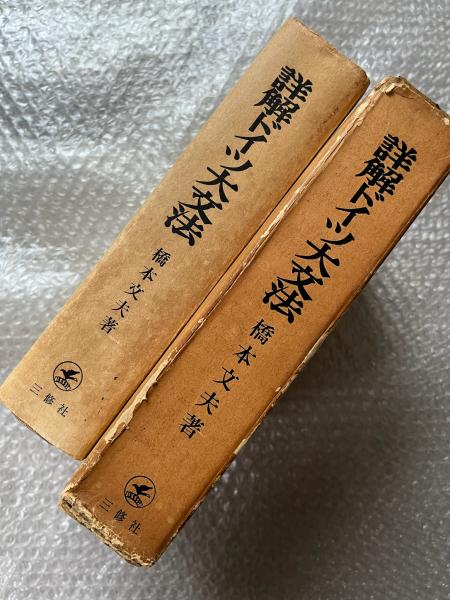 詳解ドイツ大文法
橋本文夫著
三修社
詳解ドイツ大文法
橋本文夫著
三修社